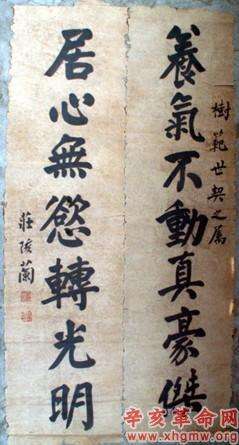 樹範世契之屬
養氣不動真豪傑
居心無慾轉光明
莊陔蘭
辛亥革命网
www.xhgmw.org